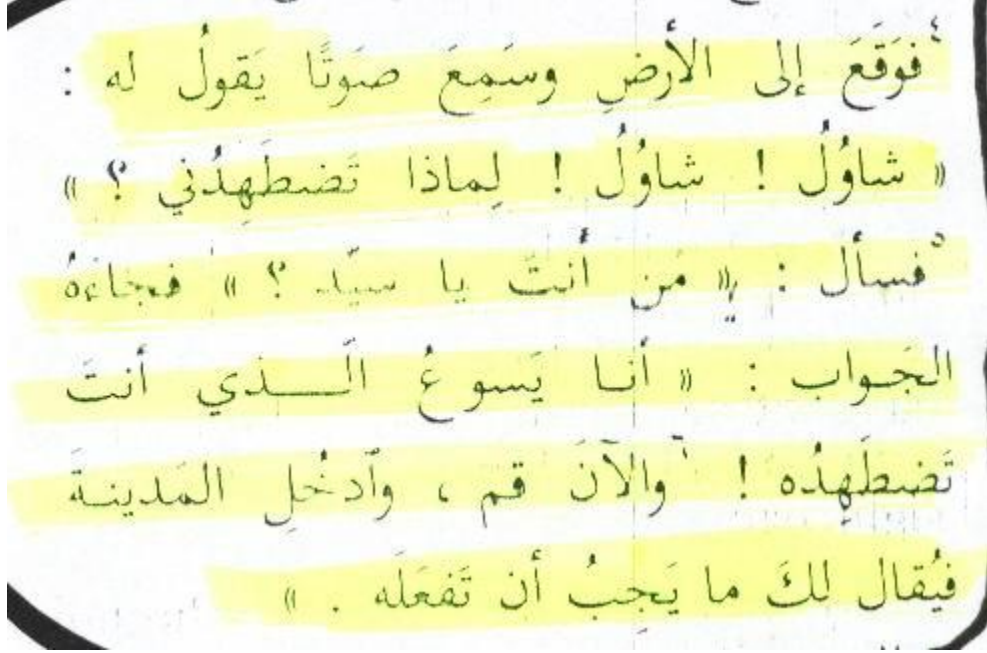 ⁴فوَقَعَ إلى الأرضِ وسَمِعَ صَوتًا يَقولُ له :
« شاوُلُ ! شاوُلُ ! لِماذا تَضطَهِدُني ؟ »
⁵فسأل : « مَن أنتَ يا سيّد ؟ » فجاءَهُ
الجَواب : « أنا يَسوعُ الّـذي أنتَ
تَضطَهِدُه ! ⁶والآنَ قم ، وٱدخُلِ المَدينـةَ
فيُقال لكَ ما يَجِبُ أن تَفعَلَه . »